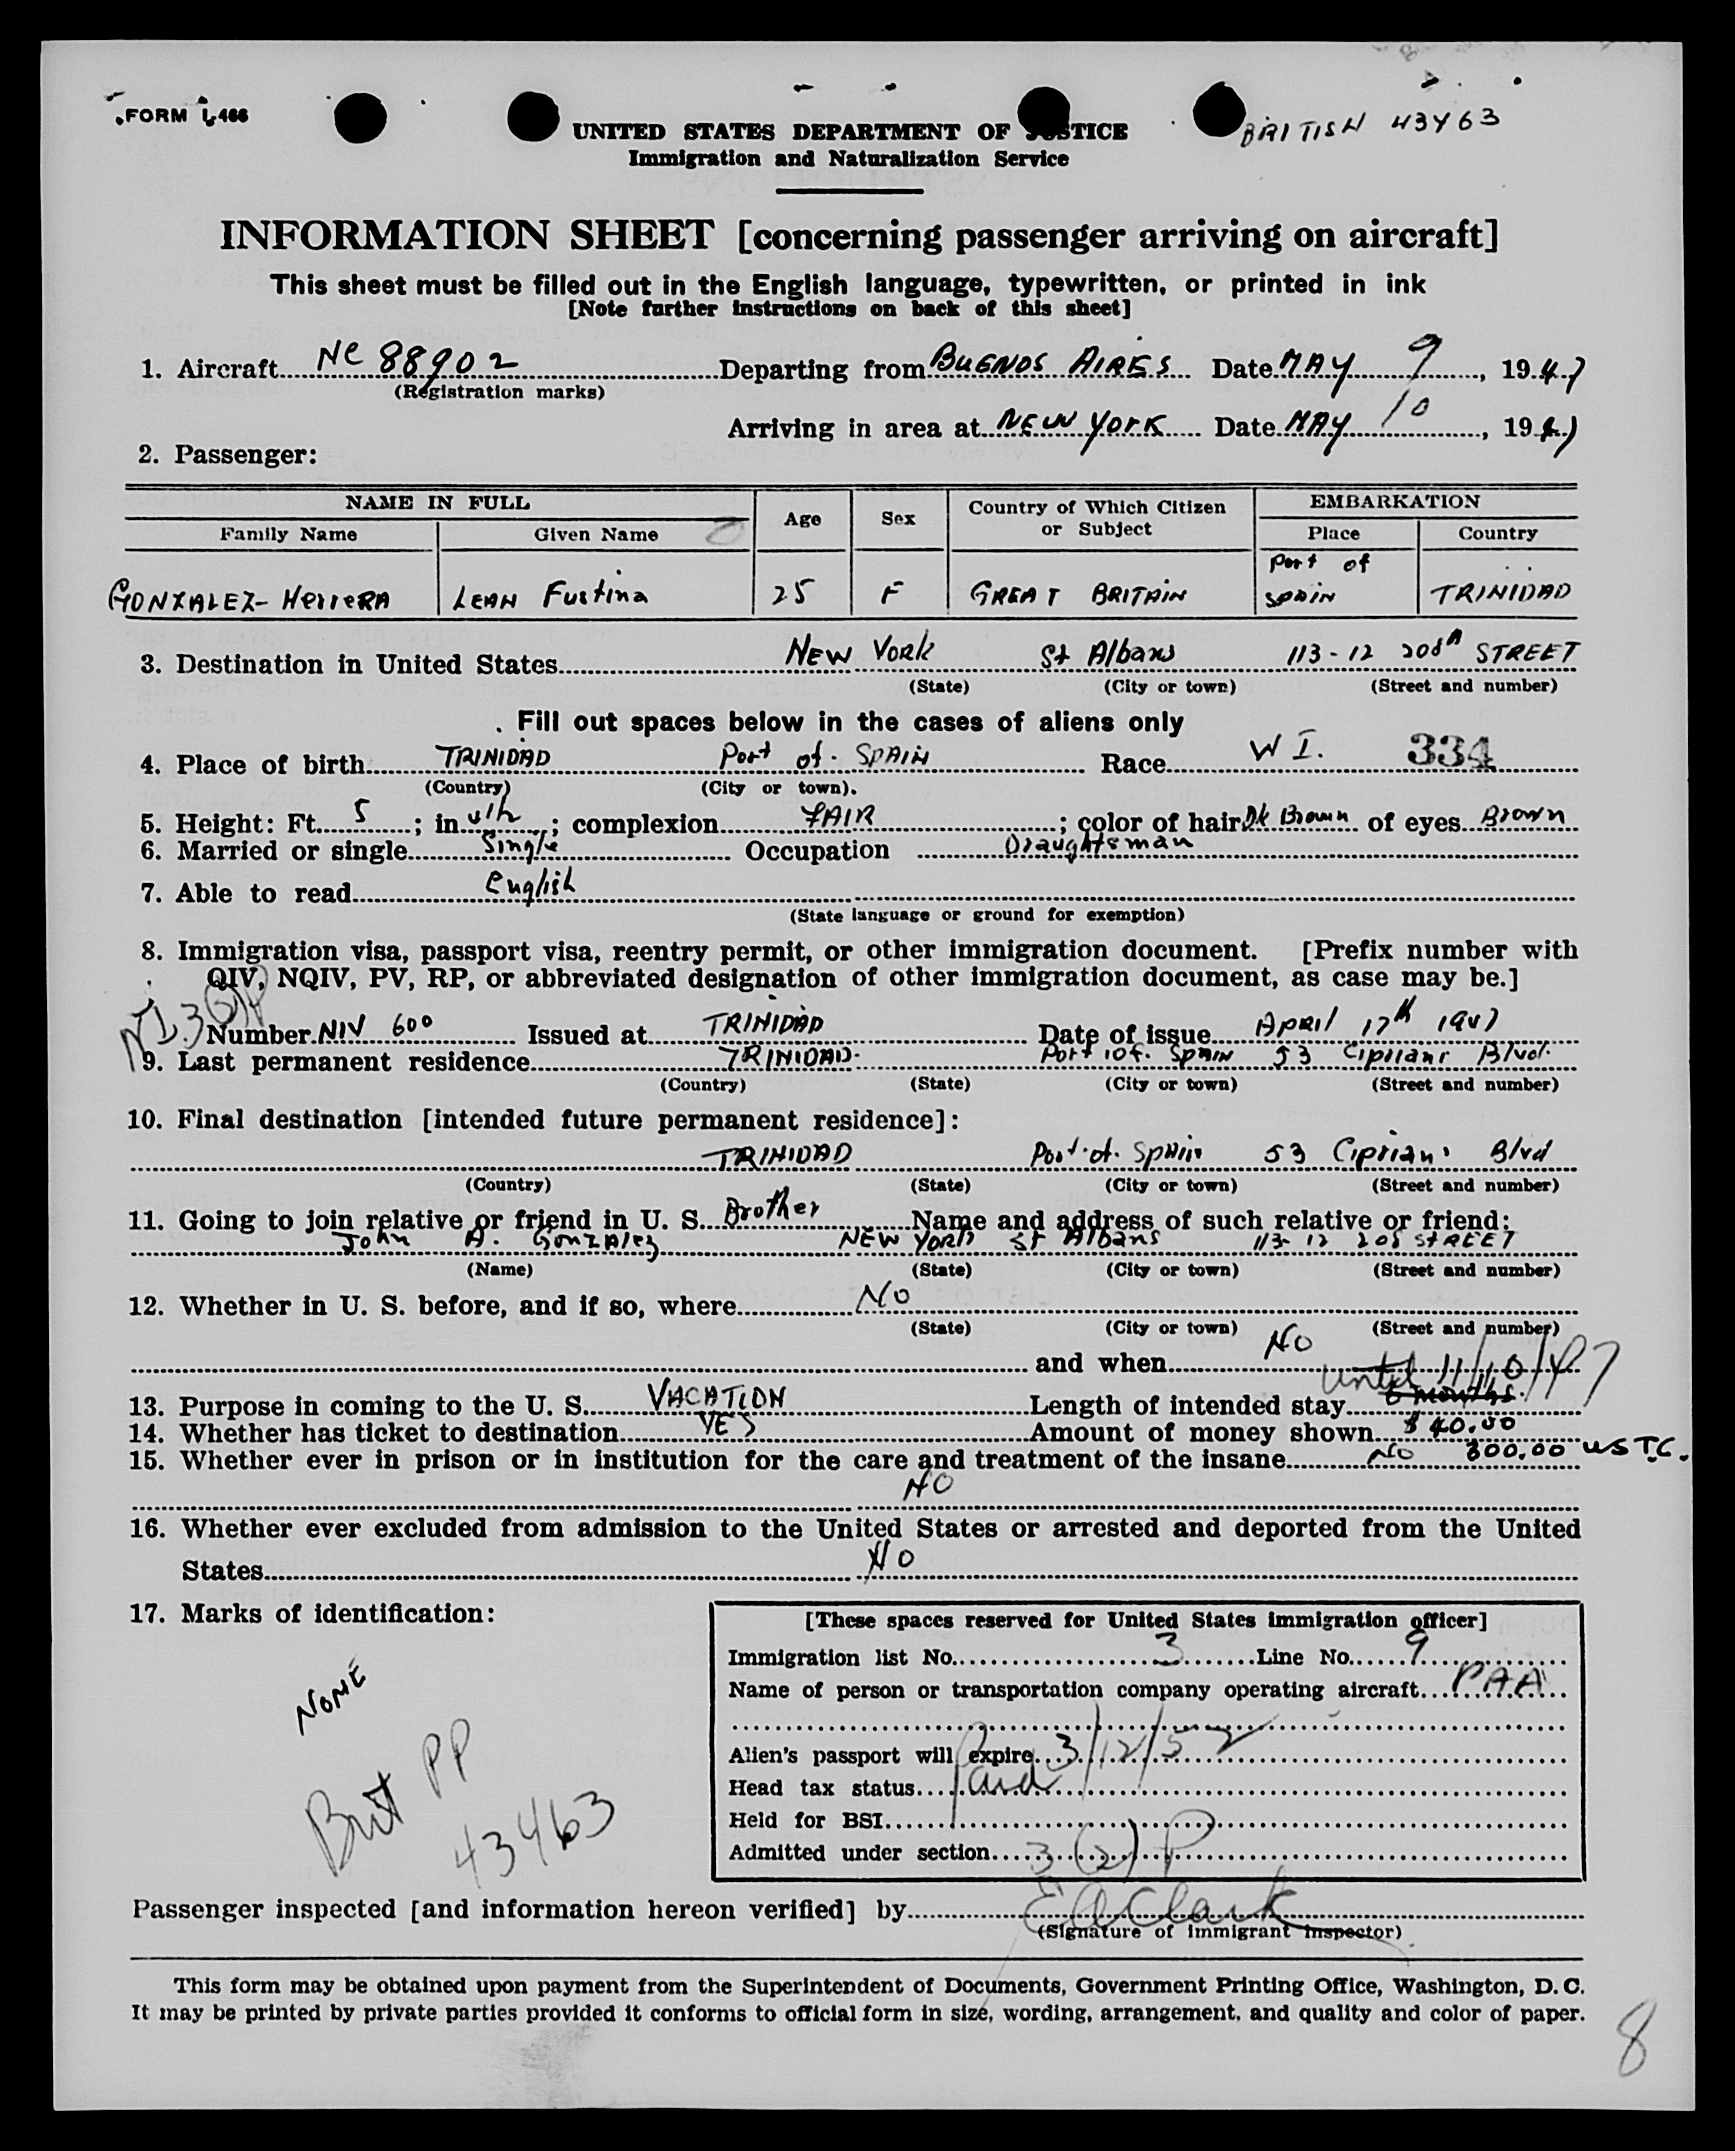 FORM I-466
BRITISH 43463
UNITED STATES DEPARTMENT OF JUSTICE
Immigration and Naturalization Service
INFORMATION SHEET [concerning passenger arriving on aircraft]
This sheet must be filled out in the English language, typewritten, or printed in ink
[Note further instructions on back of this sheet]
1. Aircraft NC 88902 Departing from BUENOS AIRES Date MAY 9, 1947
(Registration marks)
Arriving in area at NEW YORK Date MAY 10, 1947
2. Passenger:
NAME IN FULL Age Sex Country of Which Citizen or Subject EMBARKATION
Family Name Given Name Place Country
GONZALEZ-HERRERA LEAN Fustina 25 F GREAT BRITAIN Port of SPAIN TRINIDAD
3. Destination in United States NEW York St Albans 113-12 208th STREET
(State) (City or town) (Street and number)
Fill out spaces below in the cases of aliens only
4. Place of birth TRINIDAD Port of SPAIN Race W I. 334
(Country) (City or town).
5. Height: Ft. 5; in. 4½; complexion FAIR; color of hair Dk Brown of eyes Brown
6. Married or single Single Occupation Draughtsman
7. Able to read English
(State language or ground for exemption)
8. Immigration visa, passport visa, reentry permit, or other immigration document. [Prefix number with
QIV, NQIV, PV, RP, or abbreviated designation of other immigration document, as case may be.]
Number NIV 600 Issued at TRINIDAD Date of issue April 17th 1947
9. Last permanent residence TRINIDAD Port of Spain 53 Cipriani Blvd.
(Country) (State) (City or town) (Street and number)
10. Final destination [intended future permanent residence]:
TRINIDAD Port of Spain 53 Cipriani Blvd
(Country) (State) (City or town) (Street and number)
11. Going to join relative or friend in U. S. Brother Name and address of such relative or friend:
John A. Gonzalez NEW YORK St Albans 113-12 208 STREET
(Name) (State) (City or town) (Street and number)
12. Whether in U. S. before, and if so, where No
(State) (City or town) (Street and number)
and when No
until 11/10/47
13. Purpose in coming to the U. S. VACATION Length of intended stay 6 months.
14. Whether has ticket to destination YES Amount of money shown $40.00
15. Whether ever in prison or in institution for the care and treatment of the insane No 300.00 US T.C.
NO
16. Whether ever excluded from admission to the United States or arrested and deported from the United
States NO
17. Marks of identification:
NONE
Brit PP
43463
[These spaces reserved for United States immigration officer]
Immigration list No. 3 Line No. 9
Name of person or transportation company operating aircraft PAA
Alien's passport will expire 3/12/52
Head tax status Paid
Held for BSI
Admitted under section 3(2) P
Passenger inspected [and information hereon verified] by E A Clark
(Signature of immigrant inspector)
This form may be obtained upon payment from the Superintendent of Documents, Government Printing Office, Washington, D. C.
It may be printed by private parties provided it conforms to official form in size, wording, arrangement, and quality and color of paper.
8